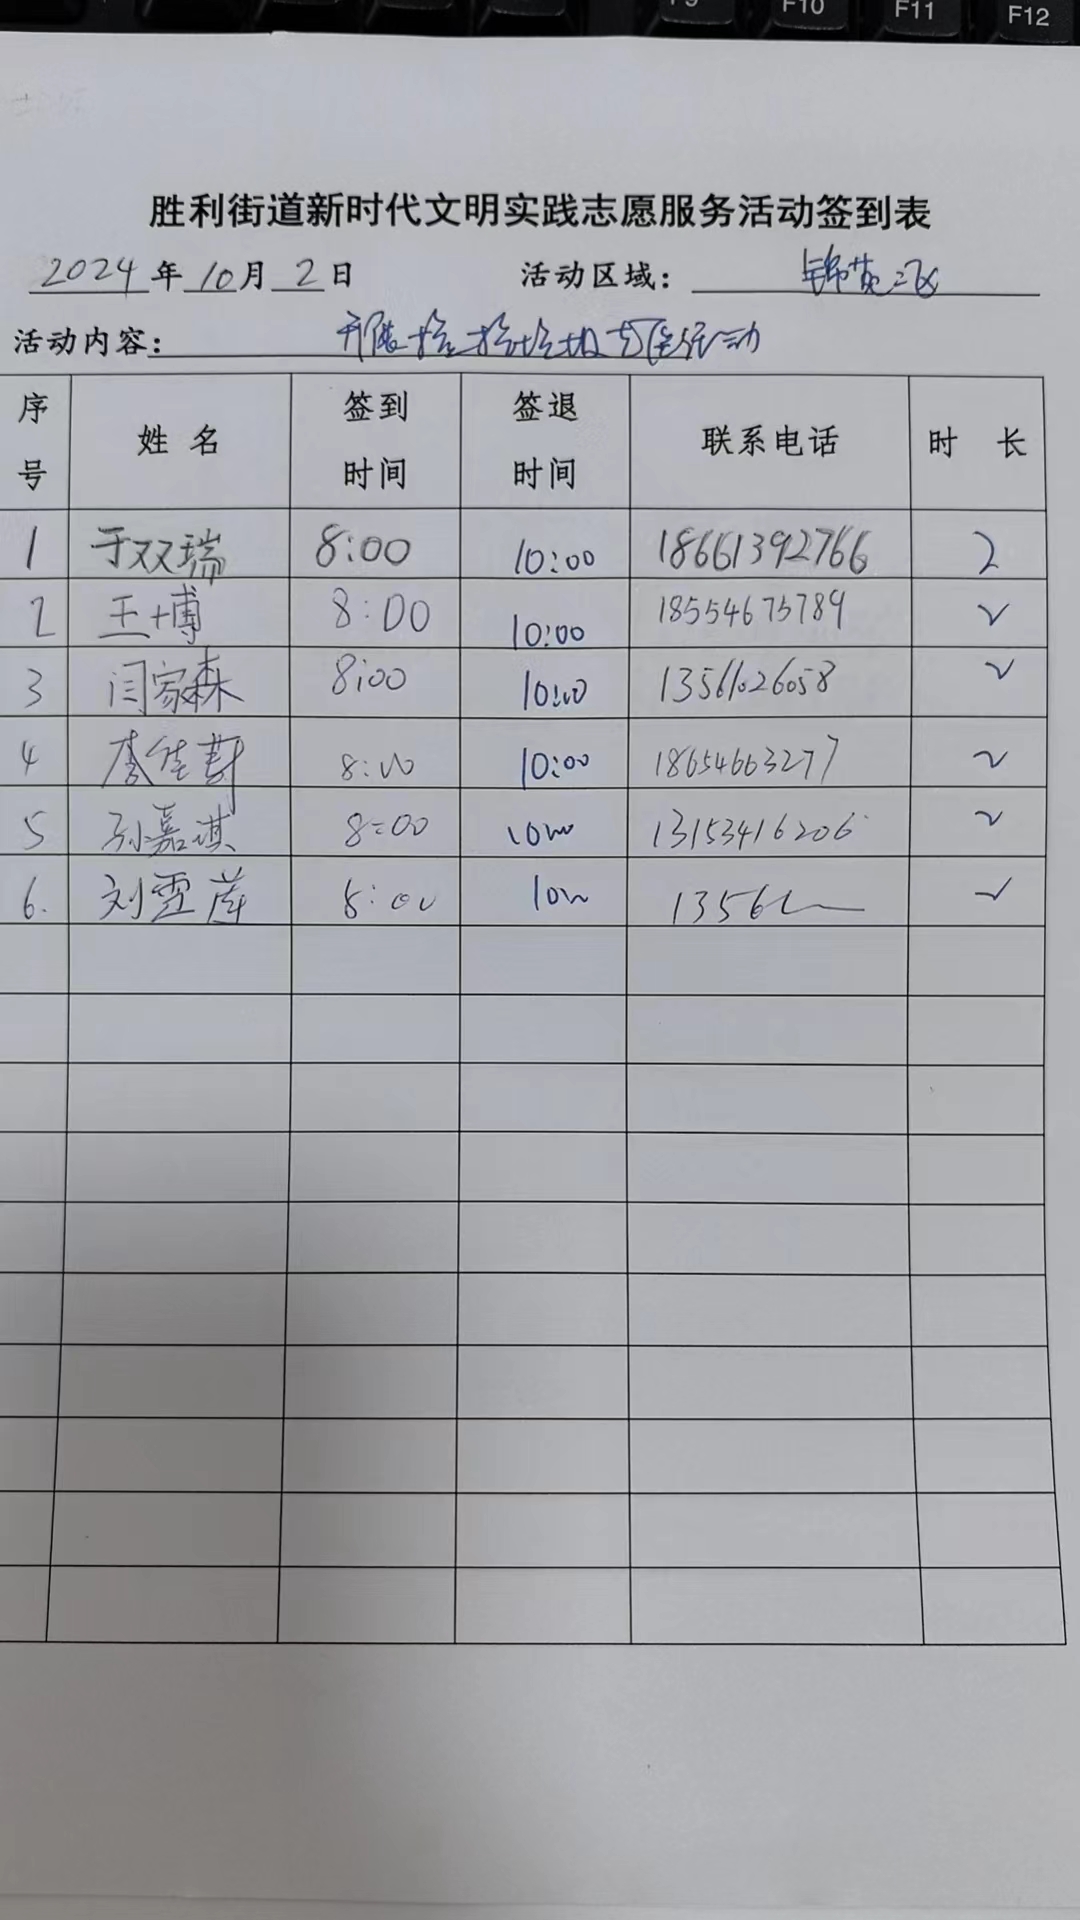 F9 F10 F11 F12
胜利街道新时代文明实践志愿服务活动签到表
2024年10月2日 活动区域：锦苑二
活动内容：开展捡垃圾 活动
序号 姓名 签到时间 签退时间 联系电话 时长
1 于双瑞 8:00 10:00 18661392766 2
2 王博 8:00 10:00 18554675789 2
3 闫家森 8:00 10:00 13561026058 2
4 李佳 8:00 10:00 18654663277 2
5 孙嘉琪 8:00 10:00 13153416206 2
6. 刘雯 8:00 10:00 1356